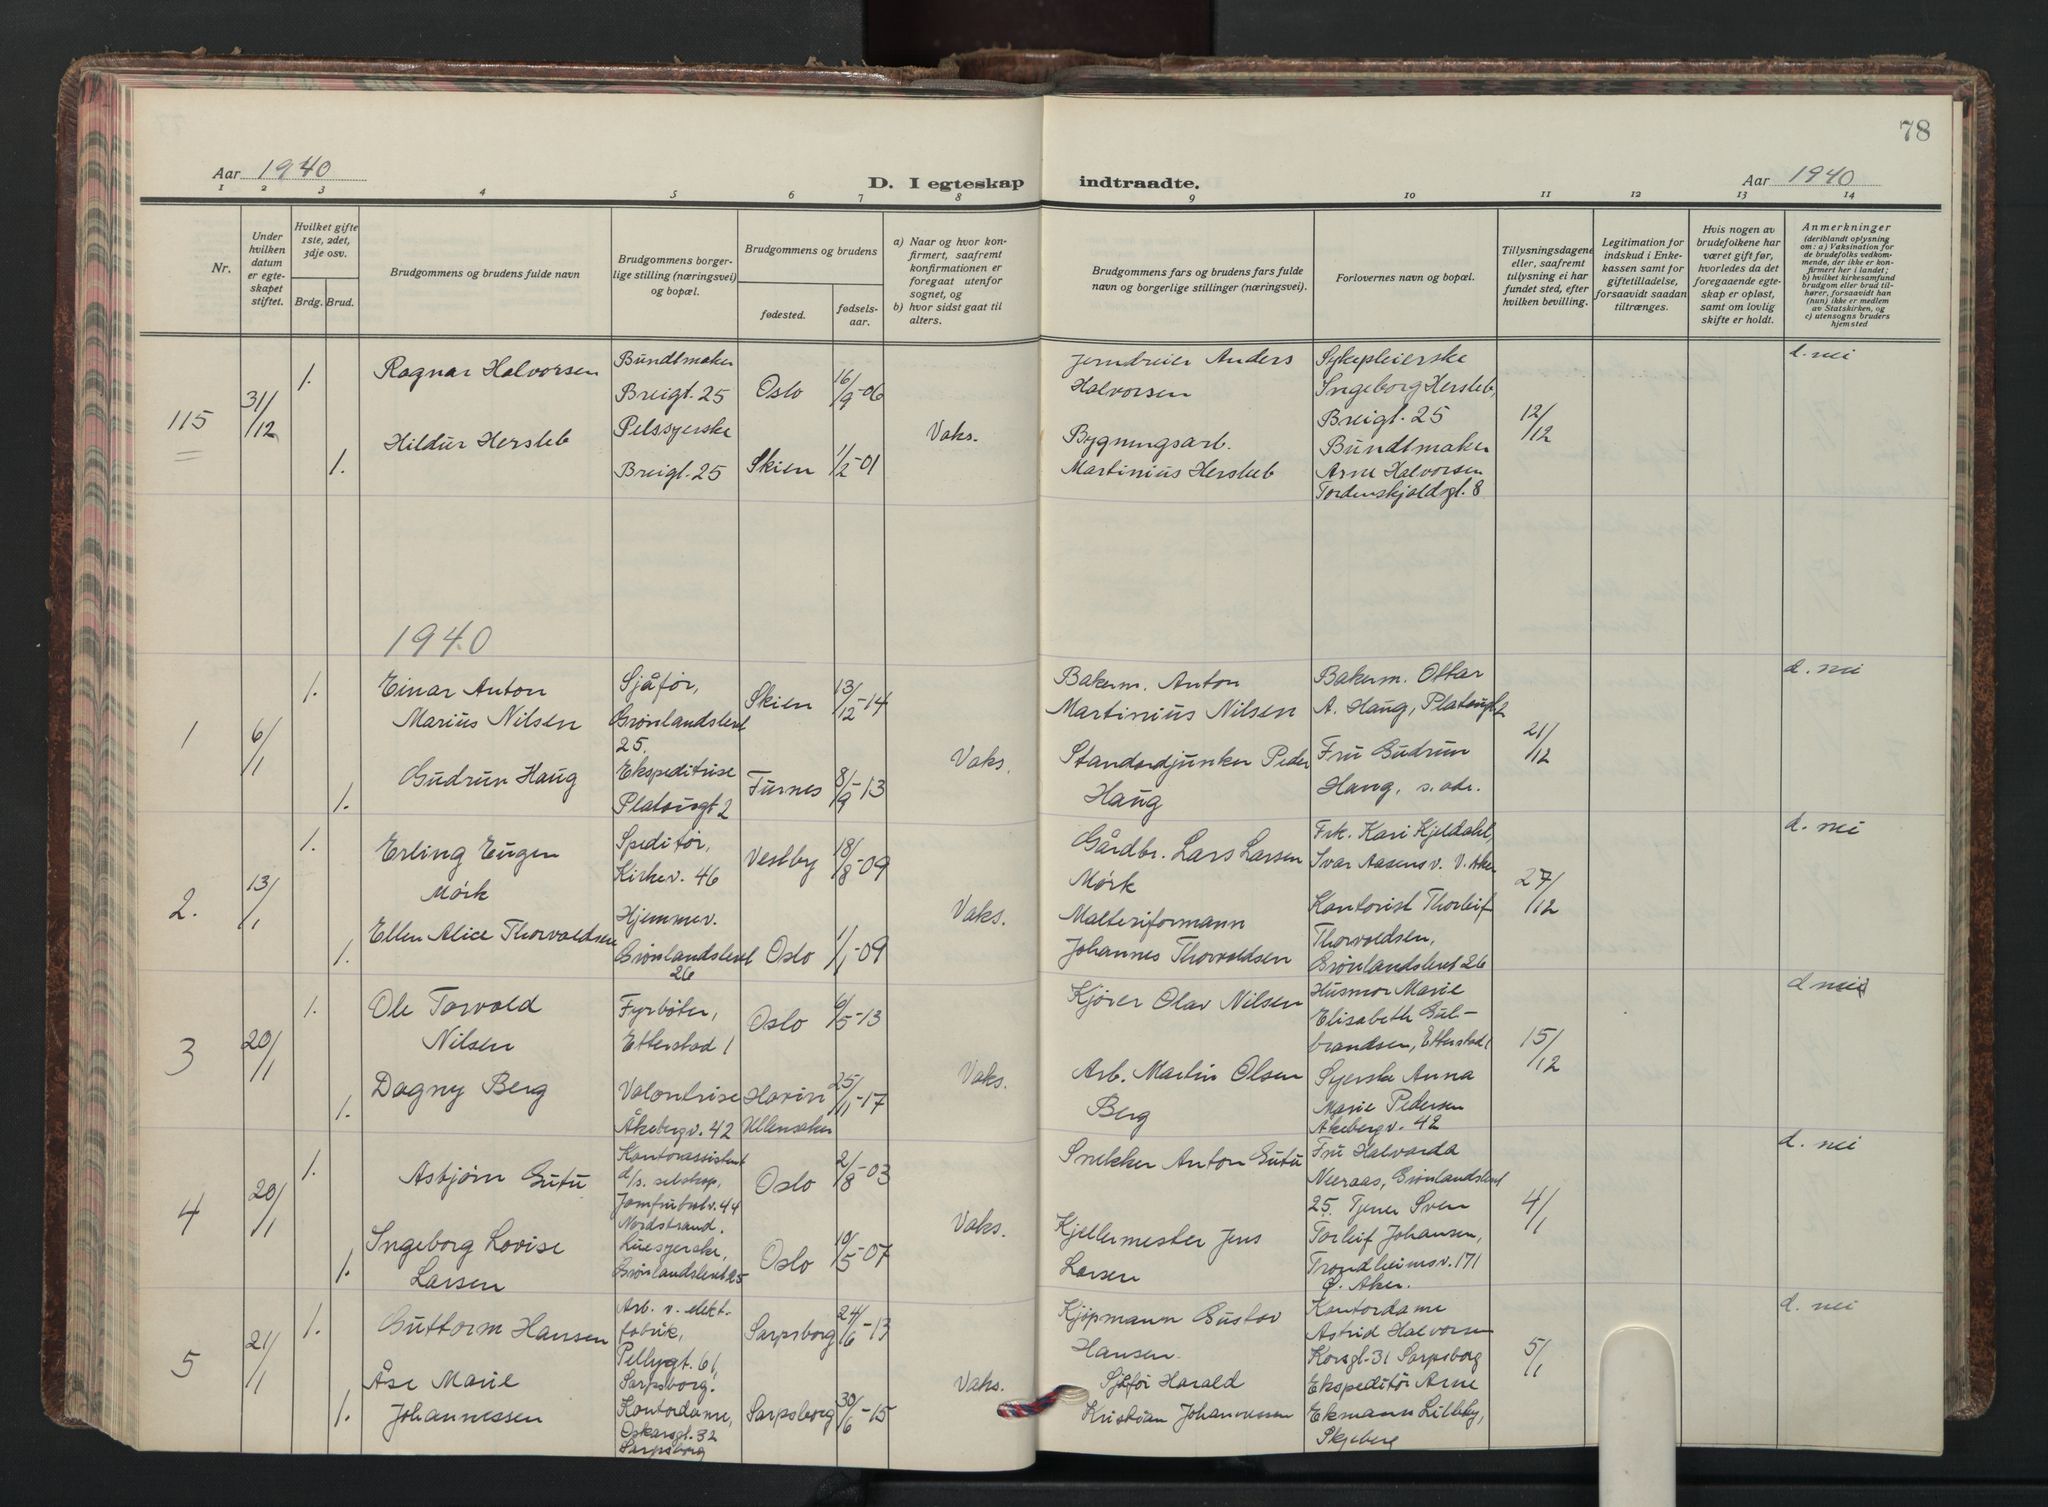 78
Aar 1940
D. I egteskap indtraadte.
Aar 1940
1 2 3 4 5 6 7 8 9 10 11 12 13 14
Nr.
Under hvilken datum er egteskapet stiftet.
Hvilket gifte 1ste, 2det, 3dje osv.
Brdg. Brud.
Brudgommens og brudens fulde navn
Brudgommens borgerlige stilling (næringsvei) og bopæl.
Brudgommens og brudens
fødested.
fødselsaar.
a) Naar og hvor konfirmert, saafremt konfirmationen er foregaat utenfor sognet, og
b) hvor sidst gaat til alters.
Brudgommens fars og brudens fars fulde navn og borgerlige stillinger (næringsvei).
Forlovernes navn og bopæl.
Tillysningsdagene eller, saafremt tillysning ei har fundet sted, efter hvilken bevilling.
Legitimation for indskud i Enkekassen samt for giftetilladelse, forsaavidt saadan tiltrænges.
Hvis nogen av brudefolkene har været gift før, hvorledes da det foregaaende egteskap er opløst, samt om lovlig skifte er holdt.
Anmerkninger
(deriblandt oplysning om: a) Vaksination for de brudefolks vedkommende, der ikke er konfirmert her i landet; b) hvilket kirkesamfund brudgom eller brud tilhører, forsaavidt han (hun) ikke er medlem av Statskirken, og c) utensogns bruders hjemsted
115
31/12
1.
Ragnar Halvorsen
Bundtmaker
Breigt. 25
Oslo
16/9-06
Jerndreier Anders
Halvorsen
Sykepleierske
Ingeborg Hersleb,
Breigt. 25
12/12
d. nei
1.
Hildur Hersleb
Pelssyerske
Breigt. 25
Skien
1/2-01
Vaks.
Bygningsarb.
Martinius Hersleb
Bundtmaker
Arne Halvorsen
Tordenskjoldsgt. 8
1940
1
6/1
1.
Einar Anton
Marius Nilsen
Sjåfør,
Grønlandsleret
25.
Skien
13/12-14
Bakerm. Anton
Martinius Nilsen
Bakerm. Ottar
A. Haug, Platougt 2
21/12
d. nei
1.
Gudrun Haug
Ekspeditrise
Platougt 2
Furnes
8/9-13
Vaks.
Standardjunker Peder
Haug
Fru Gudrun
Haug, s. adr.
2.
13/1
1.
Erling Eugen
Mørk
Speditør,
Kirkev. 46
Vestby
18/8-09
Gårdbr. Lars Larsen
Mørk
Frk. Kari Kjeldahl,
Ivar Aasensv. V. Aker
27/12
d. nei
1.
Ellen Alice Thorvaldsen
Hjemmev.
Grønlandsleret
26
Oslo
1/1-09
Vaks.
Malteriformann
Johannes Thorvaldsen
Kontorist Thorleif
Thorvaldsen,
Grønlandsleret 26
3
20/1
1.
Ole Torvald
Nilsen
Fyrbøter,
Etterstad 1
Oslo
6/5-13
Kjører Olav Nilsen
Husmor Marie
Elisabeth Gul-
brandsen, Etterstad 1
15/12
d. nei
1.
Dagny Berg
Valontrise
Åkebergv. 42
Hovin
Ullensaker
25/11-17
Vaks.
Arb. Martin Olsen
Berg
Syerske Anna
Marie Pedersen
Åkebergv. 42
4
20/1
1.
Asbjørn Gutu
Kontorassistent
d/s. selskap,
Jomfrubrtv. 44
Nordstrand.
Oslo
2/8-03
Snekker Anton Gutu
Fru Halvarda
Neeraas, Grønlandsleret
25.
4/1
d. nei
1.
Ingeborg Lovise
Larsen
Luesyerske,
Grønlandsleret 25
Oslo
10/5-07
Vaks.
Kjellermester Jens
Larsen
Tjener Sven
Torleif Johansen,
Trondheimsv. 171
Ø. Aker.
5
21/1
1.
Guttorm Hansen
Arb. v. elekt-
fabrik,
Pellygt. 61,
Sarpsborg.
Sarpsborg
24/6-13
Kjøpmann Gustav
Hansen.
Kontordame
Astrid Halvorsen
Korsgt. 31 Sarpsborg
5/1
d. nei
1.
Åse Marie
Johannessen
Kontordame,
Oskarsgt. 32
Sarpsborg
Sarpsborg
30/6-15
Vaks.
Sjåfør Harald
Kristian Johannessen
Ekspeditør Arne
Ekmann Lilleby,
Skjeberg